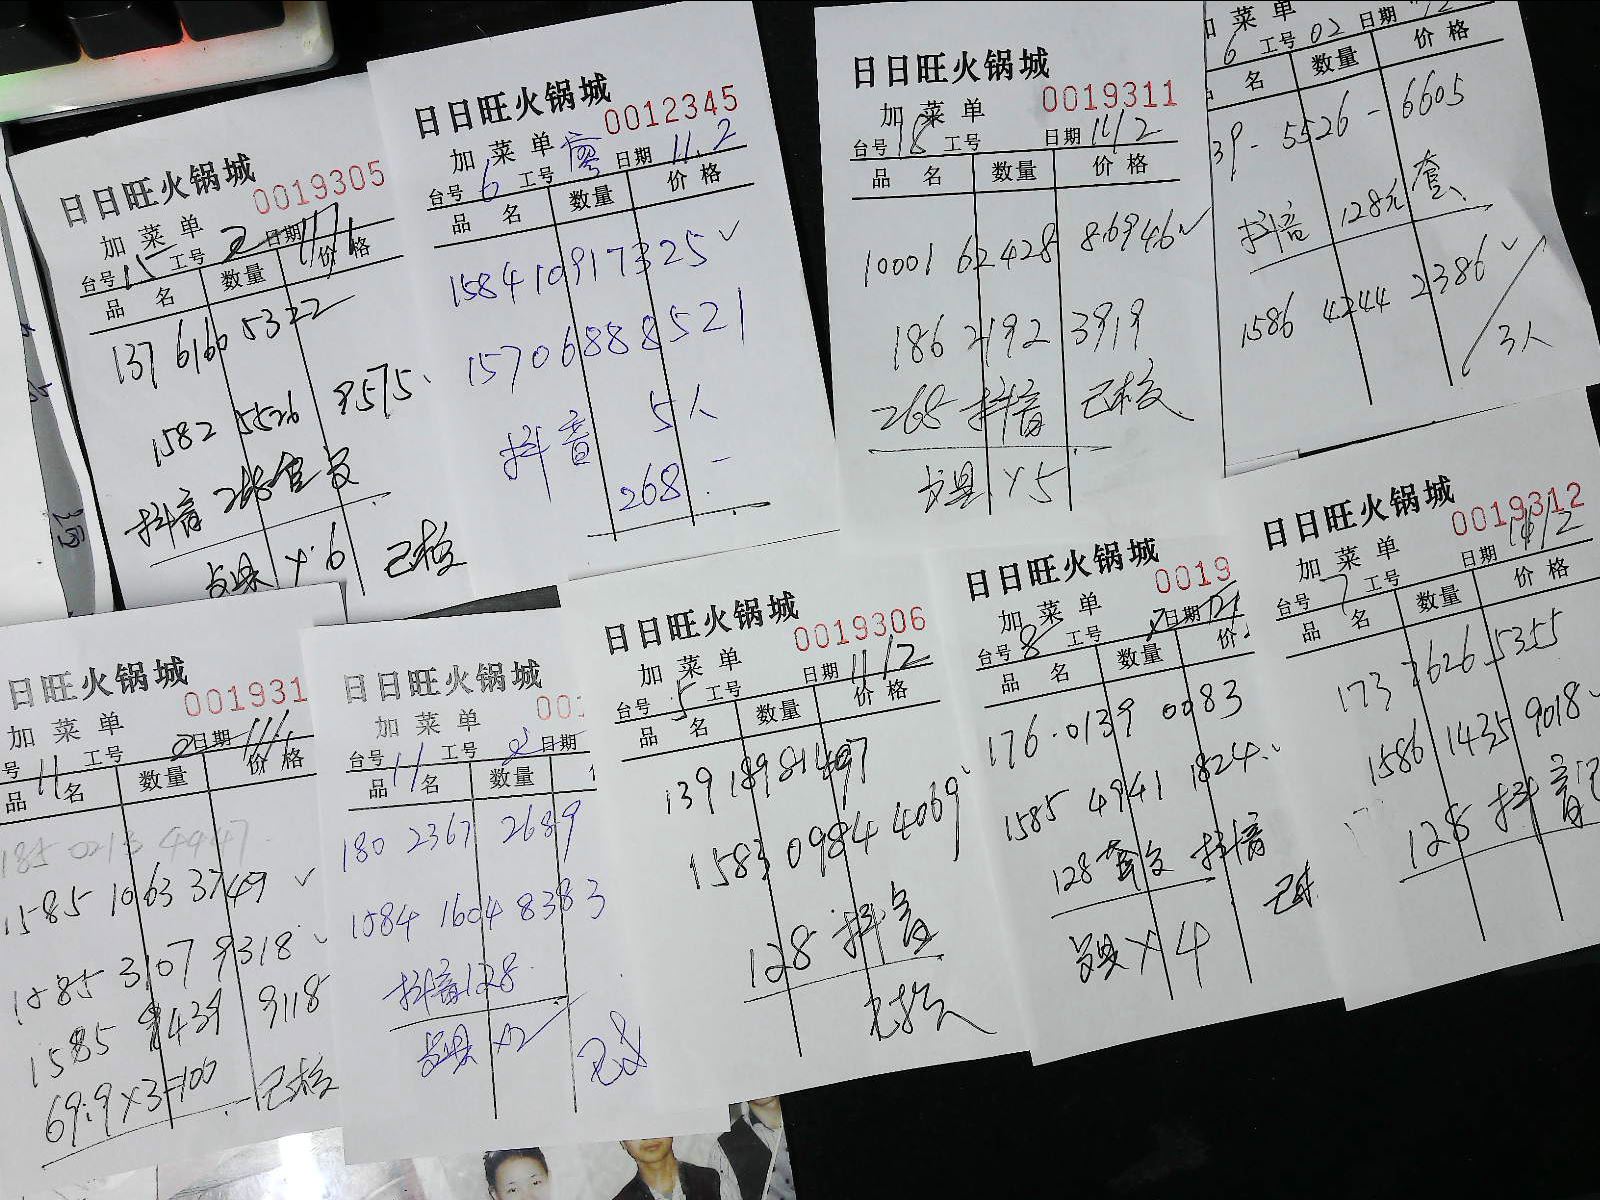 日日旺火锅城
0019305
加菜单
台号 15 工号 2 日期 11/1
品名 数量 价格
137 6160 5322
1582 5526 9575
抖音 268套
餐具 ×6 已核
日日旺火锅城
0012345
加菜单
台号 6 工号 廖 日期 11.2
品名 数量 价格
15841091 7325
15706888521
抖音 5人
268
日日旺火锅城
0019311
加菜单
台号 18 工号 日期 11/2
品名 数量 价格
10001 62428 86946
186 2192 3919
268 抖音 已核
餐具 ×5
加菜单
6 工号 02 日期
名 数量 价格
39-5526-6605
抖音 128元 套
1586 4244 2386
3人
日旺火锅城
001931
加菜单
号 11 工号 2 日期 11/1
品名 数量 价格
185 0215 4447
1585 1063 3749
1585 3107 9318
1585 9439 9118
69.9×3=100 已核
日日旺火锅城
001
加菜单
台号 11 工号 2 日期
品名 数量
180 2367 2689
1584 1604 8383
抖音128
餐具 ×2
日日旺火锅城
0019306
加菜单
台号 5 工号 日期 11/2
品名 数量 价格
139 1898 1497
1583 0984 4069
128 抖音
已核
日日旺火锅城
0019
加菜单
台号 8 工号 2 日期
品名 数量 价
176.0139 0083
1585 4941 1824
128 套 抖音
餐具 ×4
日日旺火锅城
0019312
加菜单
台号 7 工号 日期 11/2
品名 数量 价格
173 2626 5355
1586 1435 9018
128 抖音